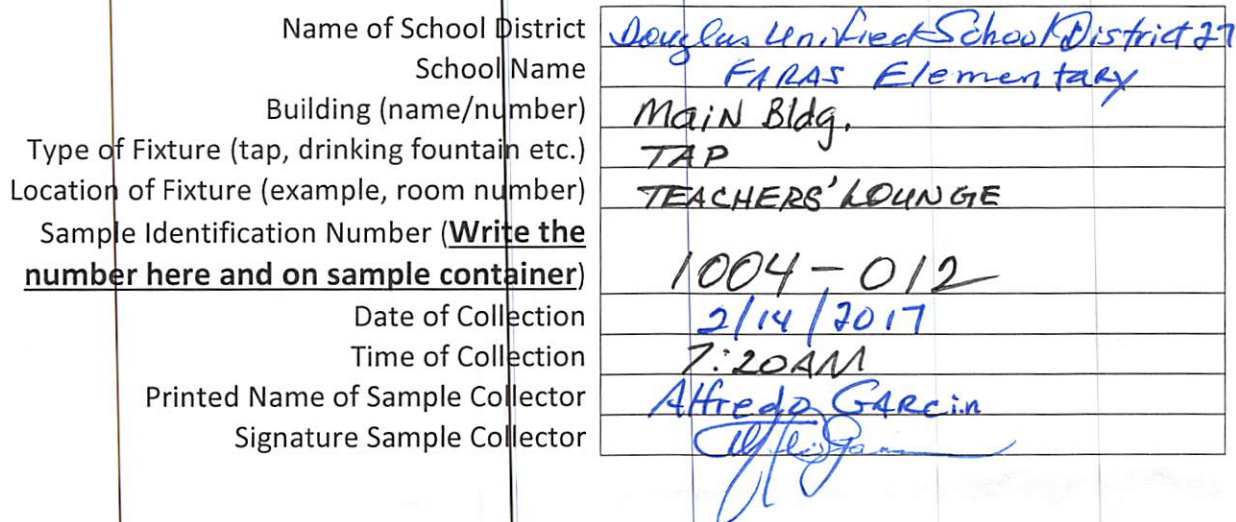 Name of School District Douglas Unified School District 27
School Name FARAS Elementary
Building (name/number) Main Bldg.
Type of Fixture (tap, drinking fountain etc.) TAP
Location of Fixture (example, room number) TEACHERS' LOUNGE
Sample Identification Number (Write the
number here and on sample container) 1004-012
Date of Collection 2/14/2017
Time of Collection 7:20AM
Printed Name of Sample Collector Alfredo GARcin
Signature Sample Collector